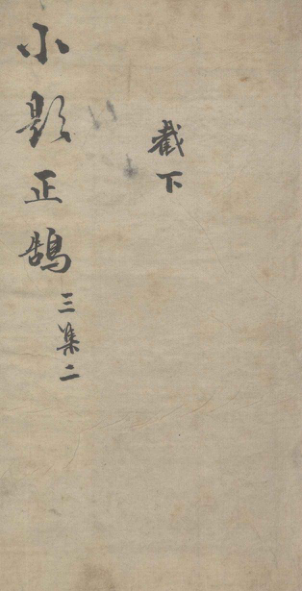 截下
小題正鵠
三集二